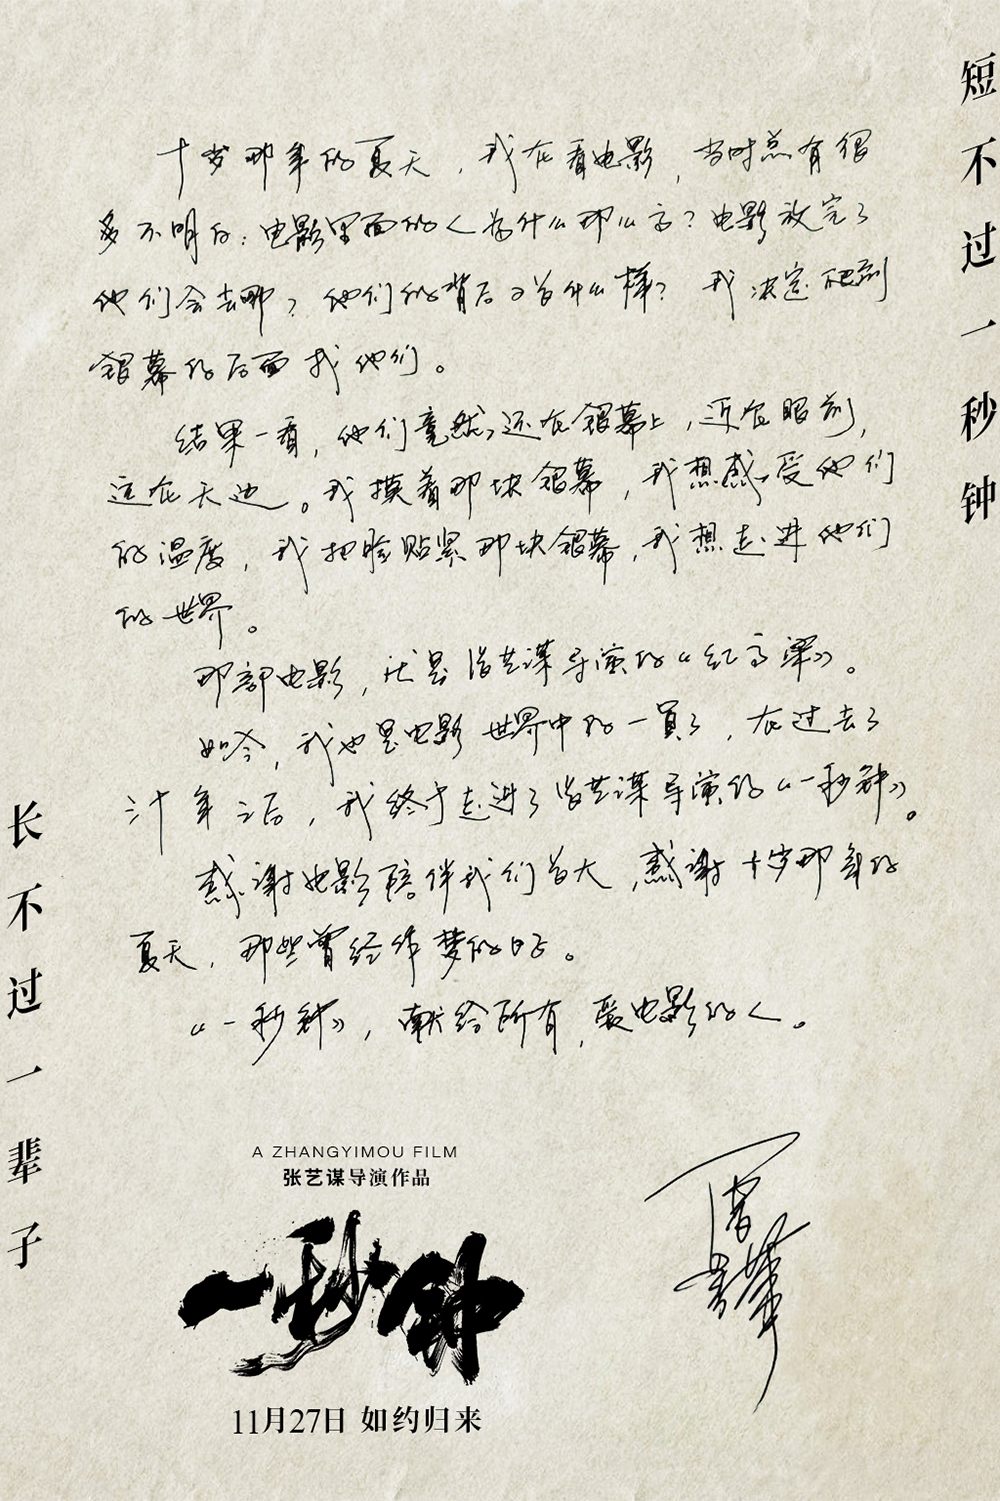 短不过一秒钟
十岁那年的夏天，我在看电影，当时总有很
多不明白：电影里面的人为什么那么高？电影放完了
他们会去哪？他们的背后又为什么样？我决定爬到
银幕的后面找他们。
结果一看，他们竟然还在银幕上，近在眼前，
远在天边。我摸着那块银幕，我想感受他们
的温度，我把脸贴紧那块银幕，我想走进他们
的世界。
那部电影，就是张艺谋导演的《红高粱》。
如今，我也是电影世界中的一員了，在过去了
三十年之后，我终于走进了张艺谋导演的《一秒钟》。
感谢电影陪伴我们长大，感谢十岁那年的
夏天，那些曾经作梦的日子。
《一秒钟》，献给所有，爱电影的人。
长不过一辈子
A ZHANGYIMOU FILM
张艺谋导演作品
一秒钟
11月27日 如约归来